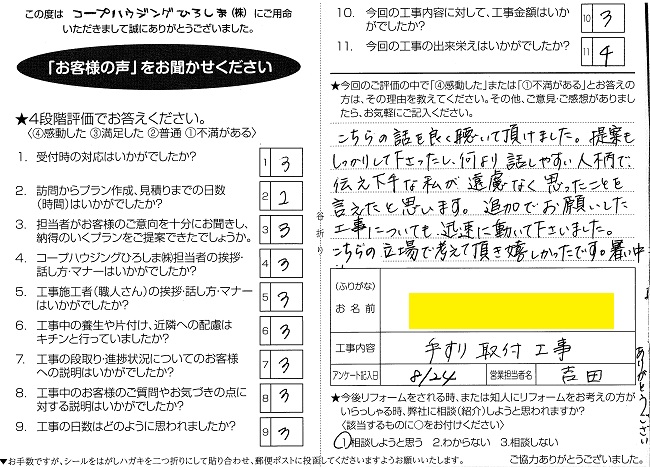 この度は コープハウジングひろしま(株) にご用命
いただきまして誠にありがとうございました。
「お客様の声」をお聞かせください
★4段階評価でお答えください。
〈④感動した ③満足した ②普通 ①不満がある〉
1. 受付時の対応はいかがでしたか?
1 3
2. 訪問からプラン作成、見積りまでの日数
(時間)はいかがでしたか?
2 2
3. 担当者がお客様のご意向を十分にお聞きし、
納得のいくプランをご提案できたでしょうか。
3 3
4. コープハウジングひろしま㈱担当者の挨拶・
話し方・マナーはいかがでしたか?
4 3
5. 工事施工者(職人さん)の挨拶・話し方・マナー
はいかがでしたか?
5 3
6. 工事中の養生や片付け、近隣への配慮は
キチンと行っていましたか?
6 3
7. 工事の段取り・進捗状況についてのお客様
への説明はいかがでしたか?
7 3
8. 工事中のお客様のご質問やお気づきの点に
対する説明はいかがでしたか?
8 3
9. 工事の日数はどのように思われましたか?
9 3
▼お手数ですが、シールをはがしハガキを二つ折りにして貼り合わせ、郵便ポストに投函してくださいますようお願いいたします。
谷折り
10. 今回の工事内容に対して、工事金額はいか
がでしたか?
10 3
11. 今回の工事の出来栄えはいかがでしたか?
11 4
★今回のご評価の中で「④感動した」または「①不満がある」とお答えの
方は、その理由を教えてください。その他、ご意見・ご感想がありまし
たら、お気軽にご記入ください。
こちらの話を良く聴いて頂けました。提案も
しっかりして下さったし、何より話しやすい人柄で、
伝え下手な私が遠慮なく思ったことを
言えたと思います。追加でお願いした
工事についても迅速に動いて下さいました。
こちらの立場で考えて頂き嬉しかったです。暑い中
ありがとうござい
(ふりがな)
お名前
工事内容 手すり取付工事
アンケート記入日 8/24 営業担当者名 吉田
★今後リフォームをされる時、または知人にリフォームをお考えの方が
いらっしゃる時、弊社に相談(紹介)しようと思われますか?
〈該当するものに○をお付けください〉
1.相談しようと思う 2.わからない 3.相談しない
ご協力ありがとうございました。